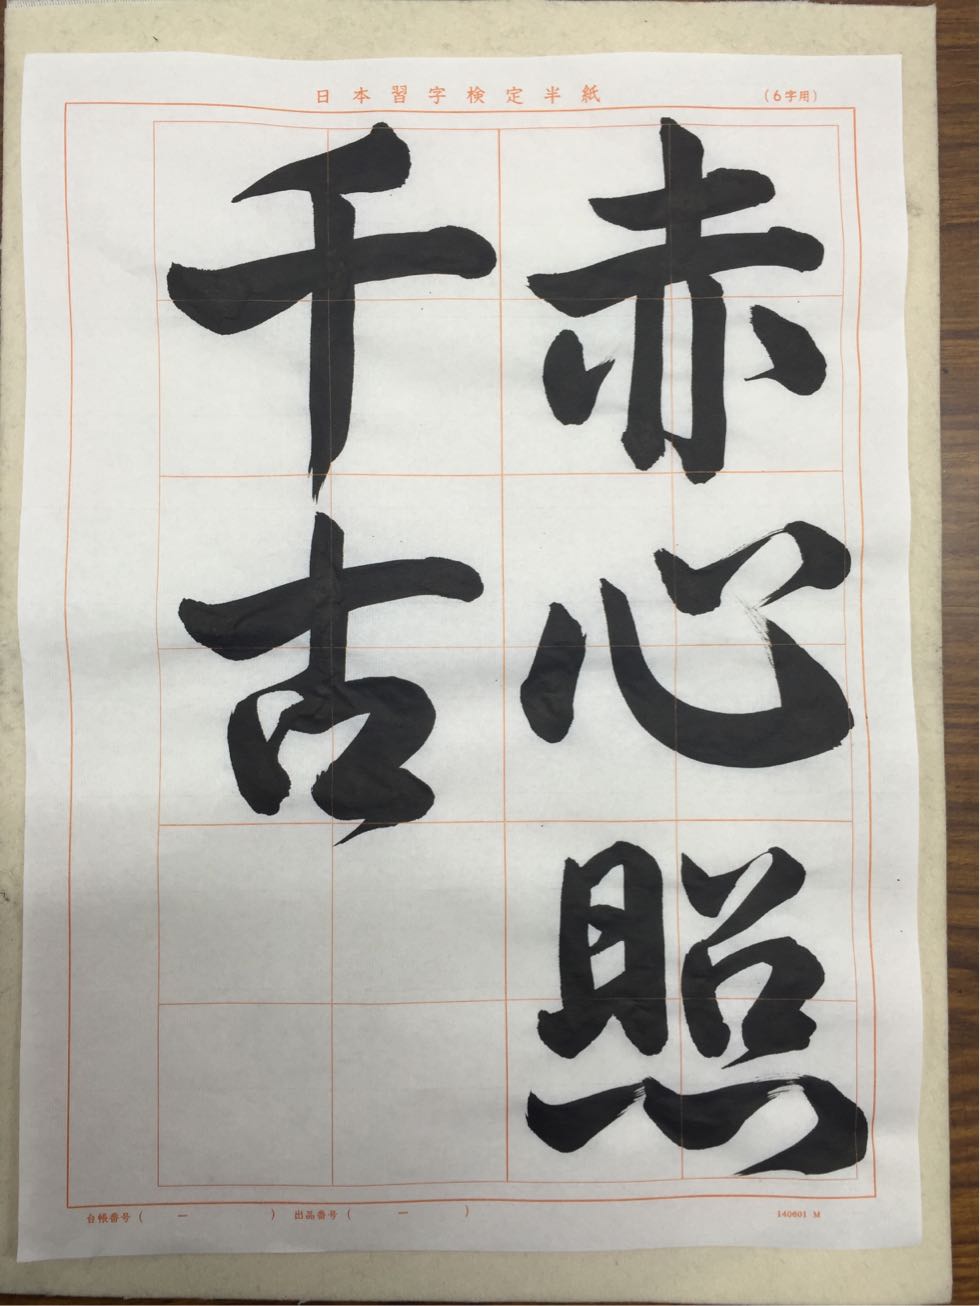 日本習字検定半紙
(6字用)
赤心照
千古
台帳番号 ( ー ) 出品番号 ( ー )
140601 M